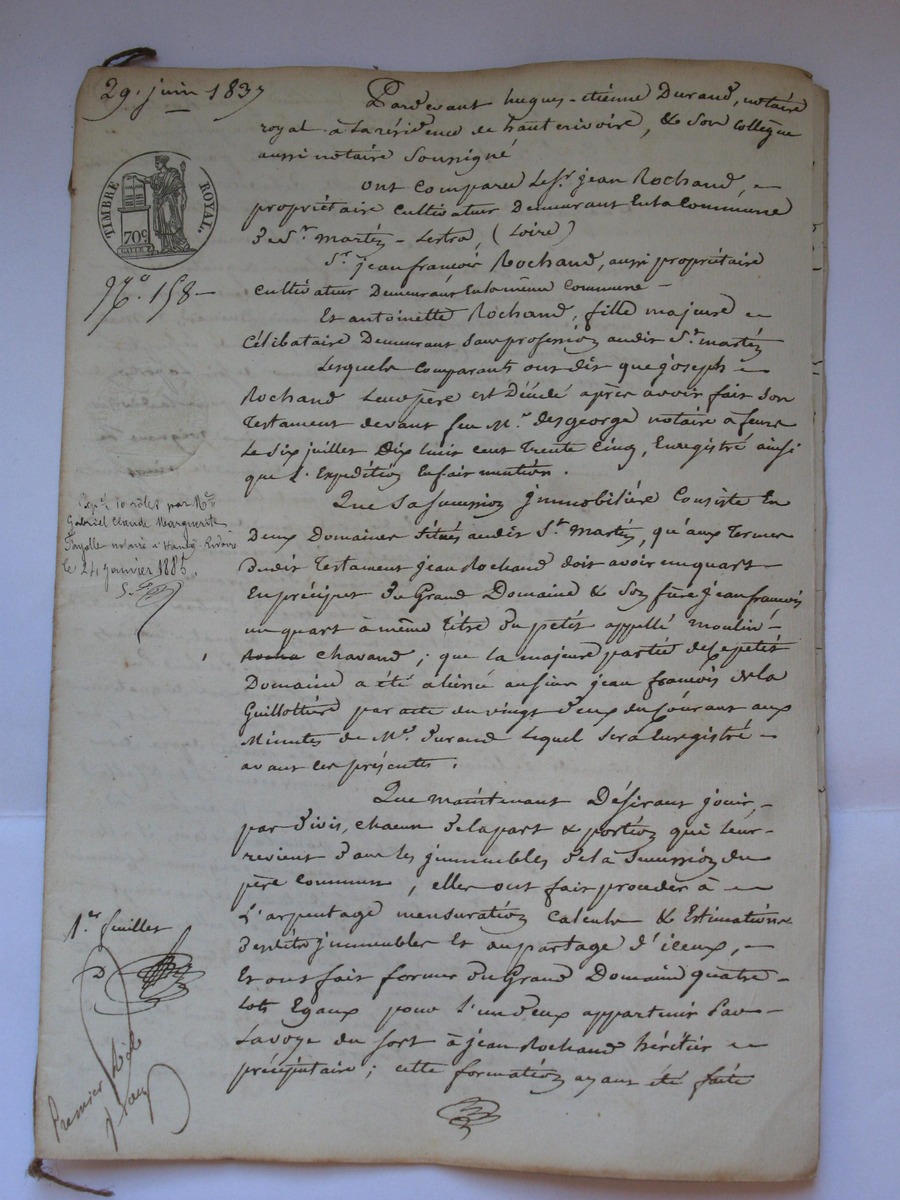 29. juin 1837
Pardevant hugues-étienne Durand, notaire
royal à la résidence de hauterivoire, & son collègue
aussi notaire soussigné
TIMBRE ROYAL.
70c
ont comparu le Sr. jean Rochand,
propriétaire cultivateur Demeurant en la Commune
de St. martin-Lestra (Loire)
Sr. jean françois Rochand, aussi propriétaire
cultivateur Demeurant en la même Commune
No. 158
Et antoinette Rochand, fille majeure
célibataire Demeurant sans profession audit St. martin
Lesquels comparants ont dit que joseph
Rochand leur père est Décédé après avoir fait son
Testament devant feu Me. desgeorge notaire à feurs
le dix juillet Dix huit cent Trente Cinq, Enregistré ainsi
que l'Expédition en fait mention.
Exp. 10 rôles par Me
Gabriel Claude Marguerite
Fayolle notaire à Haute-Rivoire
le 24 janvier 1885.
Que sa succession jmmobiliére Consiste en
Deux Domaines Situés audit St. Martin, qu'aux Termes
Dudit Testament jean Rochand doit avoir un quart
En préciput du Grand Domaine & Son frère jean françois
un quart à même titre du petit appellé moulin
chavand; que la majeure partie de ce petit
Domaine a été aliéné au sieur jean françois de la
Guillottière par acte du vingt deux du Courant aux
Minutes de Me. Durand lequel sera Enregistré
avant ces présentes.
Que maintenant Désirant jouir,
par Divis, chacun de la part & portion qui leur
revient dans les jmmeubles de la Succession du
père Commun, elles ont fait procéder à
L'arpentage mensuration calculs & Estimations
desdits jmmeubles Et au partage d'iceux,
Et ont fait former du Grand Domaine quatre
Lots Egaux pour l'un d'eux appartenir par
La voye du sort à jean Rochand héritier
préciputaire; cette formation ayant été faite
1er. feuillet
Premier Rôle